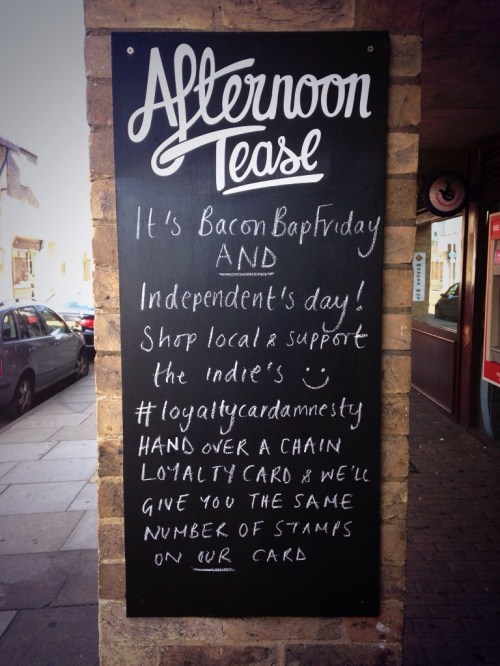 Afternoon
Tease
It's Bacon Bap Friday
AND
Independent's day!
Shop local & support
the indie's :)
#loyaltycardamnesty
HAND OVER A CHAIN
LOYALTY CARD & WE'LL
GIVE YOU THE SAME
NUMBER OF STAMPS
ON OUR CARD